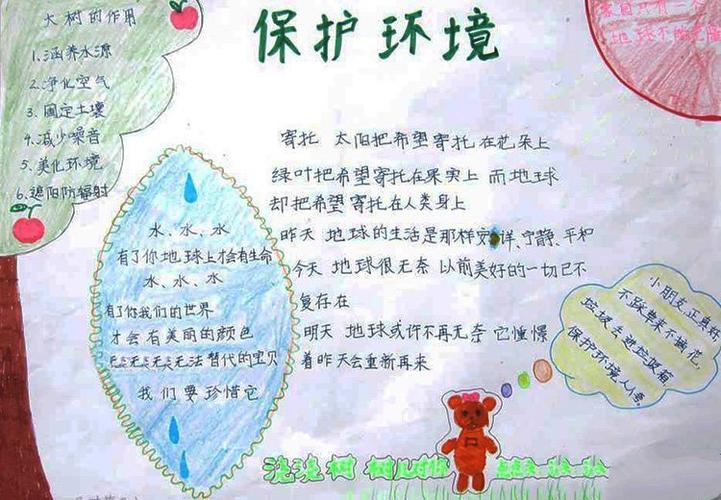 大树的作用
1.涵养水源
2.净化空气
3.固定土壤
4.减少噪音
5.美化环境
6.遮阳防辐射
保护环境
家园只有一个
地球不能
寄托 太阳把希望寄托在花朵上
绿叶把希望寄托在果实上 而地球
却把希望寄托在人类身上
昨天 地球的生活是那样安详、宁静、平和
今天 地球很无奈 以前美好的一切已不
复存在
明天 地球或许不再无奈 它憧憬
着昨天会重新再来
水、水、水
有了你地球上才会有生命
水、水、水
有了你我们的世界
才会有美丽的颜色
无法替代的宝贝
我们要珍惜它
小朋友
不踩草来不摘花,
垃圾丢进垃圾箱,
保护环境人人
浇浇树 树儿对你